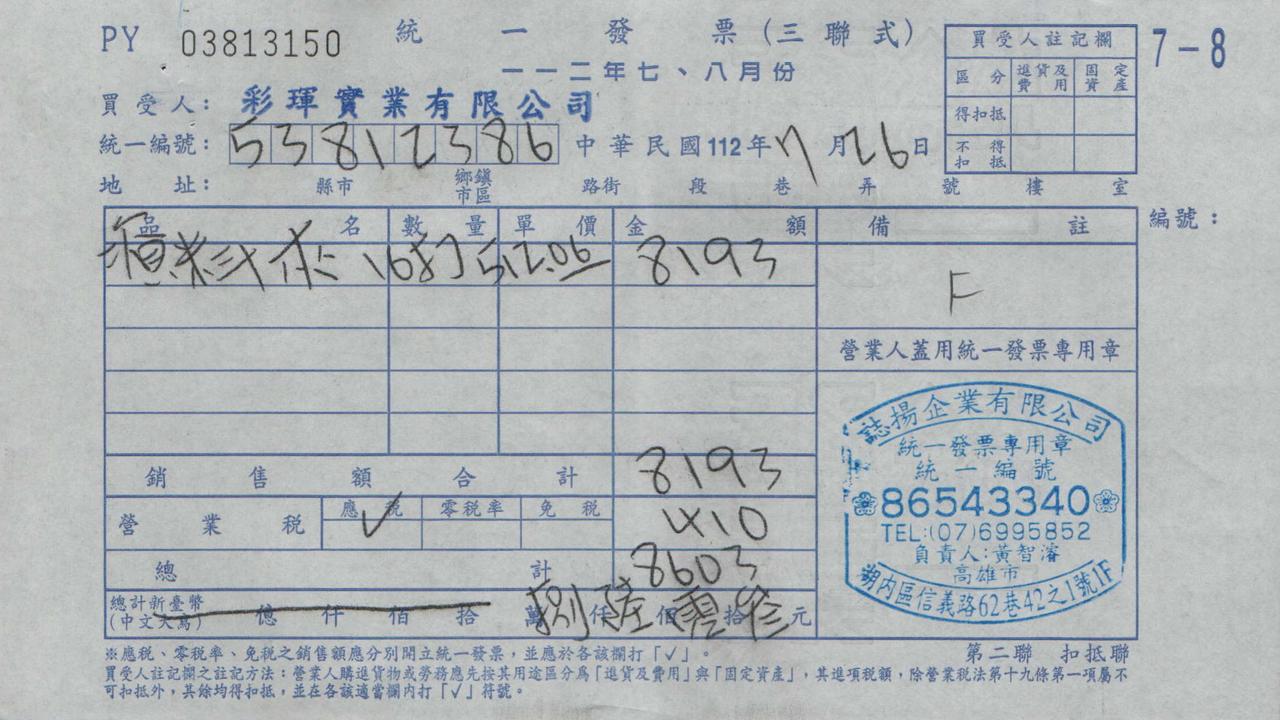 PY 03813150 統一發票(三聯式)
一一二年七、八月份
7-8
買受人註記欄
區分 進貨及費用 固定資產
得扣抵
不得扣抵
買受人: 彩琿實業有限公司
統一編號: 53812386 中華民國112年7月26日
地址: 縣市 鄉鎮市區 路街 段 巷 弄 號 樓 室
品名 數量 單價 金額 備註 編號:
16打 512.06 8193
F
營業人蓋用統一發票專用章
銷售額合計 8193
營業稅 應稅 ✓ 零稅率 免稅 410
總計 8603
總計新臺幣(中文大寫) 億 仟 佰 拾 萬 捌仟陸佰零拾參元
誌揚企業有限公司
統一發票專用章
統一編號
86543340
TEL:(07)6995852
負責人:黃智濬
高雄市
湖內區信義路62巷42之1號1F
※應稅、零稅率、免稅之銷售額應分別開立統一發票,並應於各該欄打「✓」。
第二聯 扣抵聯
買受人註記欄之註記方法:營業人購進貨物或勞務應先按其用途區分為「進貨及費用」與「固定資產」,其進項稅額,除營業稅法第十九條第一項屬不
可扣抵外,其餘均得扣抵,並在各該適當欄內打「✓」符號。